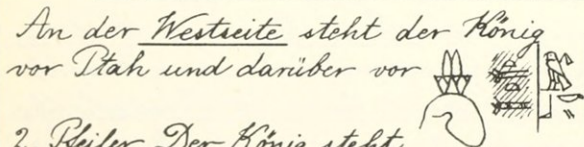 An der Westseite steht der König
vor Ptah und darüber vor
2. Pfeiler Der König steht